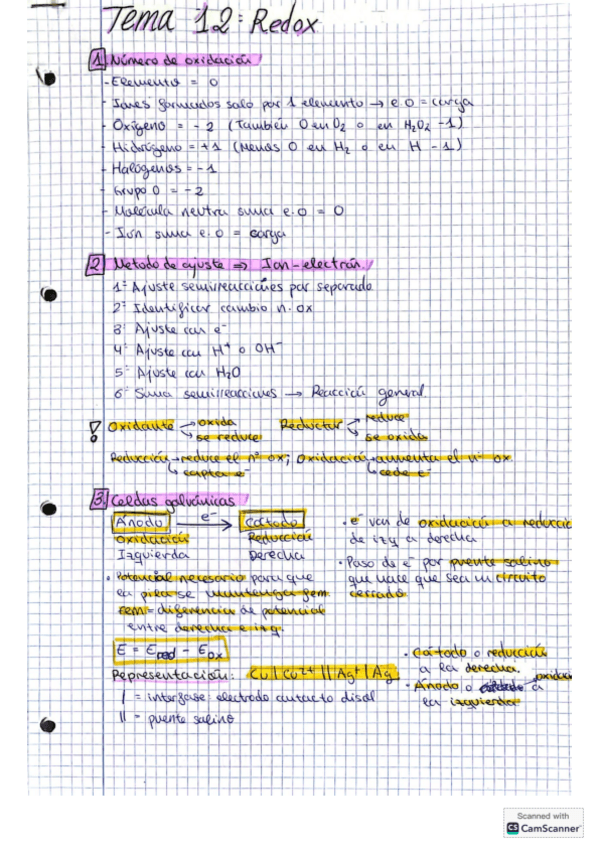 Tema 12: Redox
1 Número de oxidación
- Elemento = 0
- Iones formados solo por 1 elemento → e.o = carga
- Oxígeno = -2 (También 0 en O₂ o en H₂O₂ -1)
- Hidrógeno = +1 (Menos 0 en H₂ o en H -1)
- Halógenos = -1
- Grupo 0 = -2
- Molécula neutra suma e.o = 0
- Ion suma e.o = carga
2 Metodo de ajuste ⇒ Ion-electrón
1º Ajuste semirreacciones por separado
2º Identificar cambio n. ox
3º Ajuste con e⁻
4º Ajuste con H⁺ o OH⁻
5º Ajuste con H₂O
6º Suma semirreacciones → Reacción general
! Oxidante → oxida → se reduce Reductor → reduce → se oxida
Reducción → reduce el nº ox; Oxidación → aumenta el nº ox
↳ capta e⁻ ↳ cede e⁻
3. Celdas galvánicas
Ánodo e⁻ → Cátodo
Oxidación Reducción
Izquierda Derecha
· e⁻ van de oxidación a reducción
de izq a derecha
· Paso de e⁻ por puente salino
que hace que sea un circuito
cerrado
· Potencial necesario para que
la pila se mantenga fem.
fem = diferencia de potencial
entre derecha e izq.
E = Ered - Eox
Representación: Cu | Cu²⁺ || Ag⁺ | Ag
| = interfase electrodo contacto disol
|| = puente salino
· Cátodo o reducción
a la derecha.
· Ánodo o oxidac a
la izquierda
Scanned with
CS CamScanner